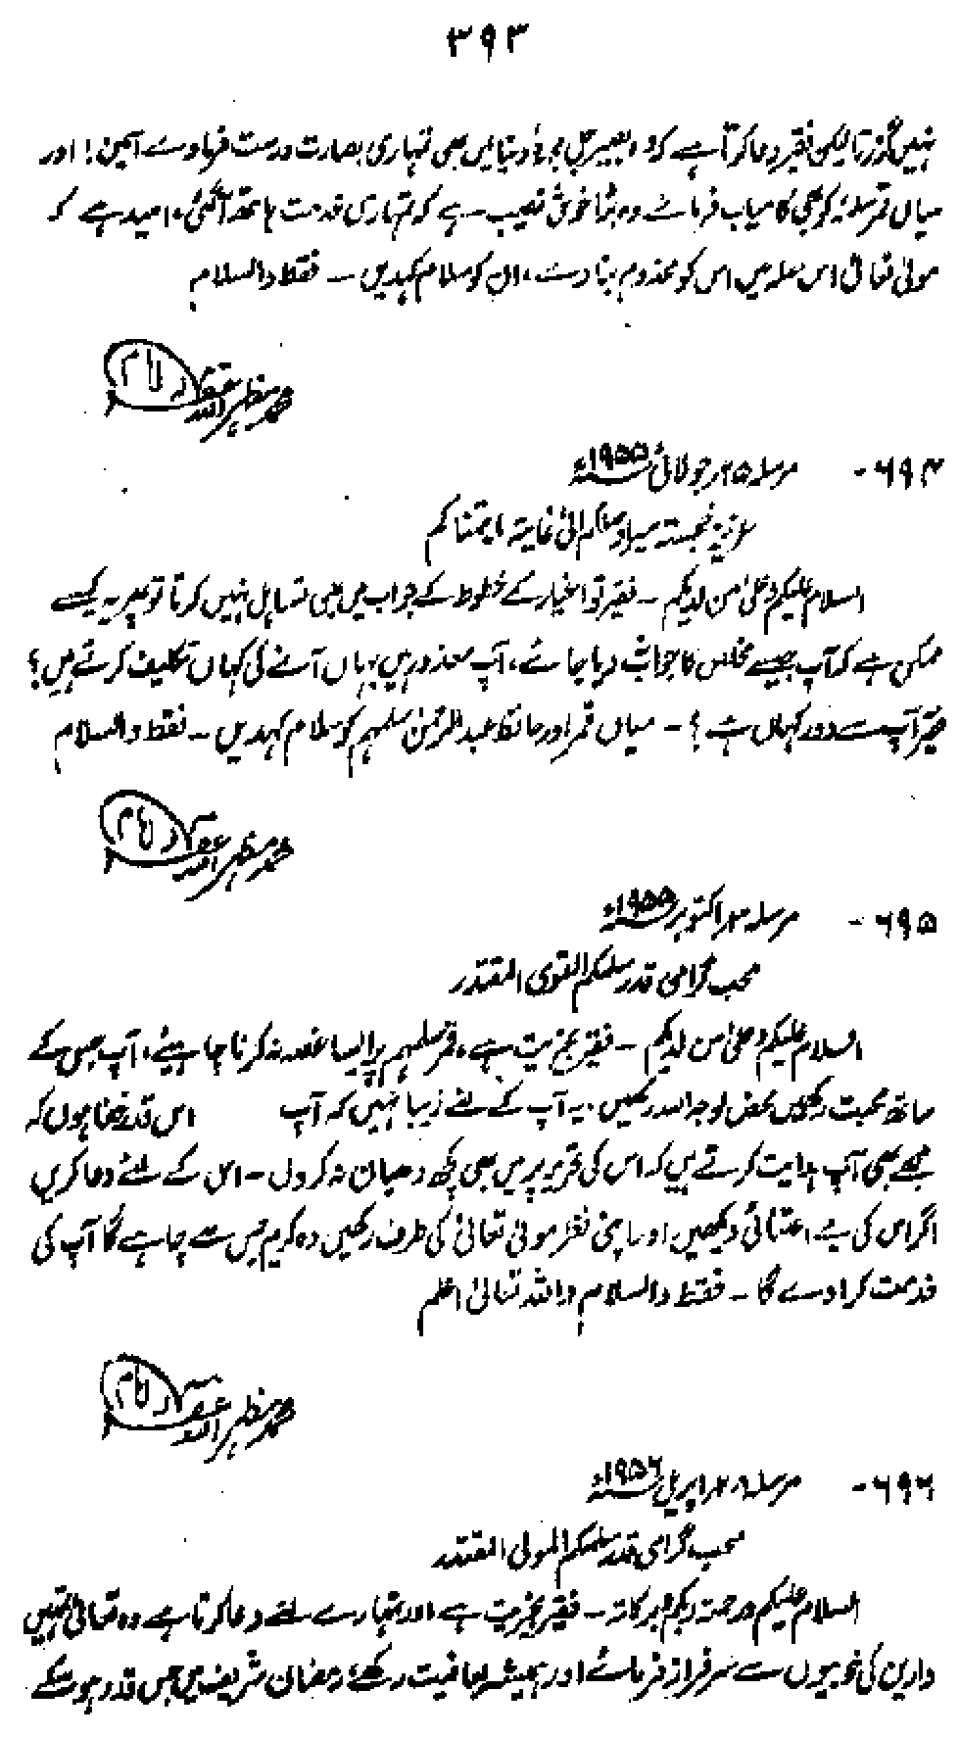 ۳۹۳
نہیں گزرتا لیکن فقیر دعا کرتا ہے کہ وہ بصیر جل مجدہٗ دنیا میں بھی تمہاری بصارت درست فرماوے آمین! اور
میاں قمر سلمہٗ کو بھی کامیاب فرمائے وہ بڑا خوش نصیب ہے کہ تمہاری خدمت ہاتھ آگئی، امید ہے کہ
مولیٰ تعالیٰ اس صلہ میں اس کو مخدوم بنا دے، ان کو سلام کہدیں ۔ فقط والسلام
محمد مظہر اللہ غفرلہ
۶۹۴- مرسلہ ۲۵ جولائی ۱۹۵۵ء
عزیز خجستہ سیر سلمکم الیٰ غایۃ ما یتمناکم
السلام علیکم وعلیٰ من لدیکم ۔ فقیر تو اغیار کے خطوط کے جواب میں بھی تساہل نہیں کرتا تو پھر یہ کیسے
ممکن ہے کہ آپ جیسے مخلص کا جواب نہ دیا جائے، آپ معذور ہیں یہاں آنے کی کہاں تکلیف کرتے ہیں؟
فقیر آپ سے دور کہاں ہے؟ ۔ میاں قمر اور حافظ عبدالرحمٰن سلمہم کو سلام کہدیں ۔ فقط والسلام
محمد مظہر اللہ غفرلہ
۶۹۵- مرسلہ ۳ اکتوبر ۱۹۵۵ء
محب گرامی قدر سلمکم القوی المقتدر
السلام علیکم وعلیٰ من لدیکم ۔ فقیر بخیریت ہے، قمر سلمہم پر ایسا غصہ نہ کرنا چاہیئے، آپ جس کے
ساتھ محبت رکھیں محض لوجہ اللہ رکھیں، یہ آپ کے لئے زیبا نہیں کہ آپ اس قدر خفا ہوں کہ
مجھے بھی آپ ہدایت کرتے ہیں کہ اس کی تحریر پر میں بھی کچھ دھیان نہ کروں ۔ اس کے لئے دعا کریں
اگر اس کی بے اعتنائی دیکھیں اور اپنی نظر مولیٰ تعالیٰ کی طرف رکھیں وہ کریم جس سے چاہے گا آپ کی
خدمت کرا دے گا ۔ فقط والسلام واللہ تعالیٰ اعلم
محمد مظہر اللہ غفرلہ
۶۹۶- مرسلہ ۲۸ اپریل ۱۹۵۶ء
محب گرامی قدر سلمکم المولیٰ المقتدر
السلام علیکم ورحمتہ ربکم وبرکاتہ ۔ فقیر بخیریت ہے اور تمہارے لئے دعا کرتا ہے وہ تعالیٰ تمہیں
دارین کی خوبیوں سے سرفراز فرمائے اور ہمیشہ بعافیت رکھے، رمضان شریف میں جس قدر ہو سکے